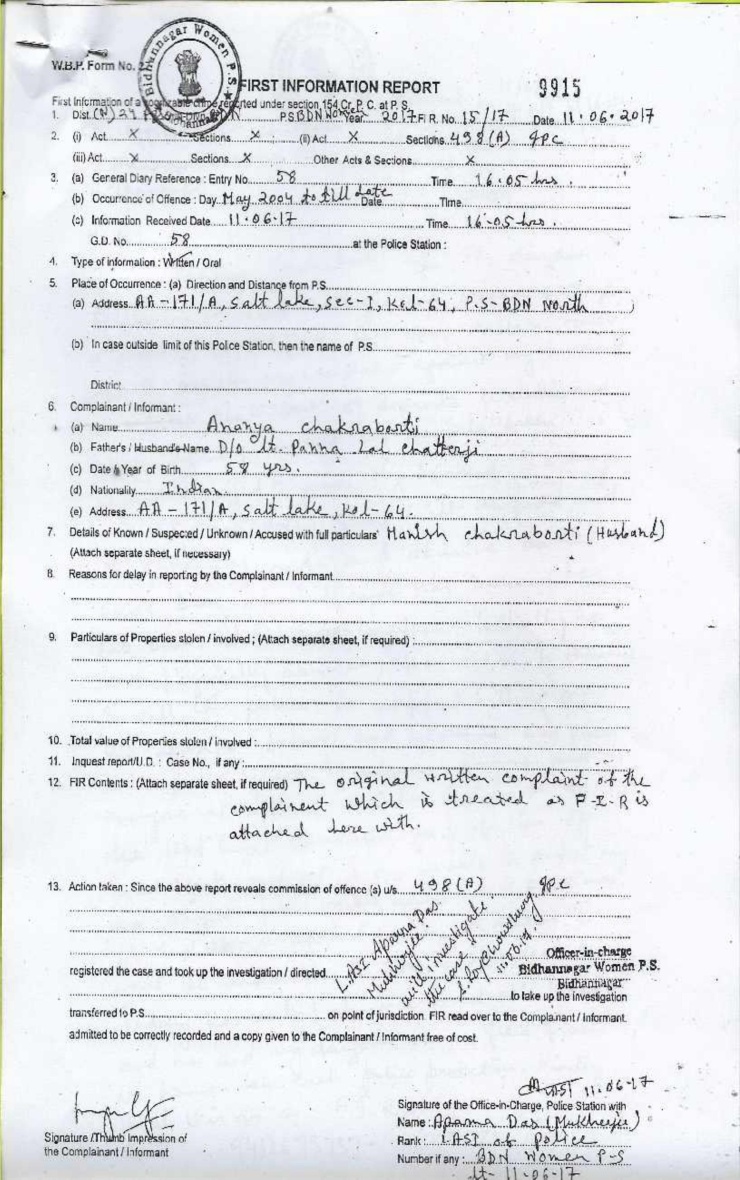 Bidhannagar Women P.S.
W.B.P. Form No. 2
FIRST INFORMATION REPORT
9915
First Information of a cognizable crime reported under section 154 Cr. P. C. at P. S.
1. Dist. (N) 24 P.S. BDN Women Year 2017 F.I.R. No. 15/17 Date 11.06.2017
2. (i) Act X Sections X (ii) Act X Sections 498(A) IPC
(iii) Act X Sections X Other Acts & Sections X
3. (a) General Diary Reference : Entry No. 58 Time 16.05 hrs.
(b) Occurrence of Offence : Day May 2004 to till date Date Time
(c) Information Received Date 11.06-17 Time 16.05 hrs.
G.D. No. 58 at the Police Station :
4. Type of information : Written / Oral
5. Place of Occurrence : (a) Direction and Distance from P.S.
(a) Address AA-171/A, Salt lake, Sec-I, Kol-64, P.S-BDN North
(b) In case outside limit of this Police Station, then the name of P.S.
District
6. Complainant / Informant :
(a) Name Ananya Chakraborti
(b) Father's / Husband's Name D/o Lt. Panna Lal Chatterji
(c) Date & Year of Birth 58 yrs.
(d) Nationality Indian
(e) Address AA-171/A, Salt lake, Kol-64.
7. Details of Known / Suspected / Unknown / Accused with full particulars Manish Chakraborti (Husband)
(Attach separate sheet, if necessary)
8. Reasons for delay in reporting by the Complainant / Informant
9. Particulars of Properties stolen / involved ; (Attach separate sheet, if required) :
10. Total value of Properties stolen / involved :
11. Inquest report/U.D. : Case No., if any :
12. FIR Contents : (Attach separate sheet, if required) The original written complaint of the
complainent which is treated as F-I-R is
attached here with.
13. Action taken : Since the above report reveals commission of offence (s) u/s 498(A) IPC
L.ASI Aparna Das
Mukherjee
will investigate
the case.
S. Roy Chowdhury
11.06.17
Officer-in-charge
registered the case and took up the investigation / directed Bidhannagar Women P.S.
Bidhannagar
to take up the investigation
transferred to P.S. on point of jurisdiction. FIR read over to the Complainant / Informant.
admitted to be correctly recorded and a copy given to the Complainant / Informant free of cost.
11.06-17
Signature of the Office-in-Charge, Police Station with
Name : Aparna Das (Mukherjee)
Signature /Thumb Impression of
the Complainant / Informant
Rank : LASI of police
Number if any : BDN Women P-S
dt- 11-06-17